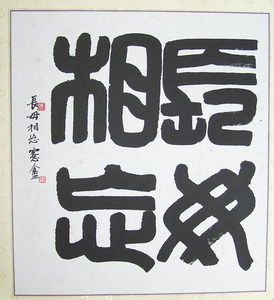 長毋
相忘
長毋相忘盦